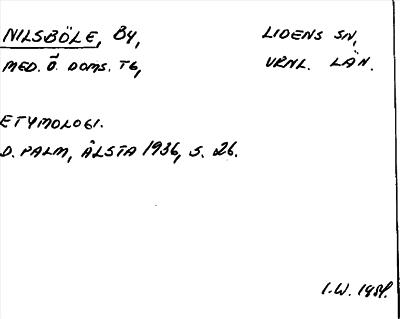 NILSBÖLE, By, LIDENS SN,
MED. Ö. DOMS. TG, VRNL. LÄN.
ETYMOLOGI.
D. PALM, ÅLSTA 1936, S. 26.
I.W. 1981.